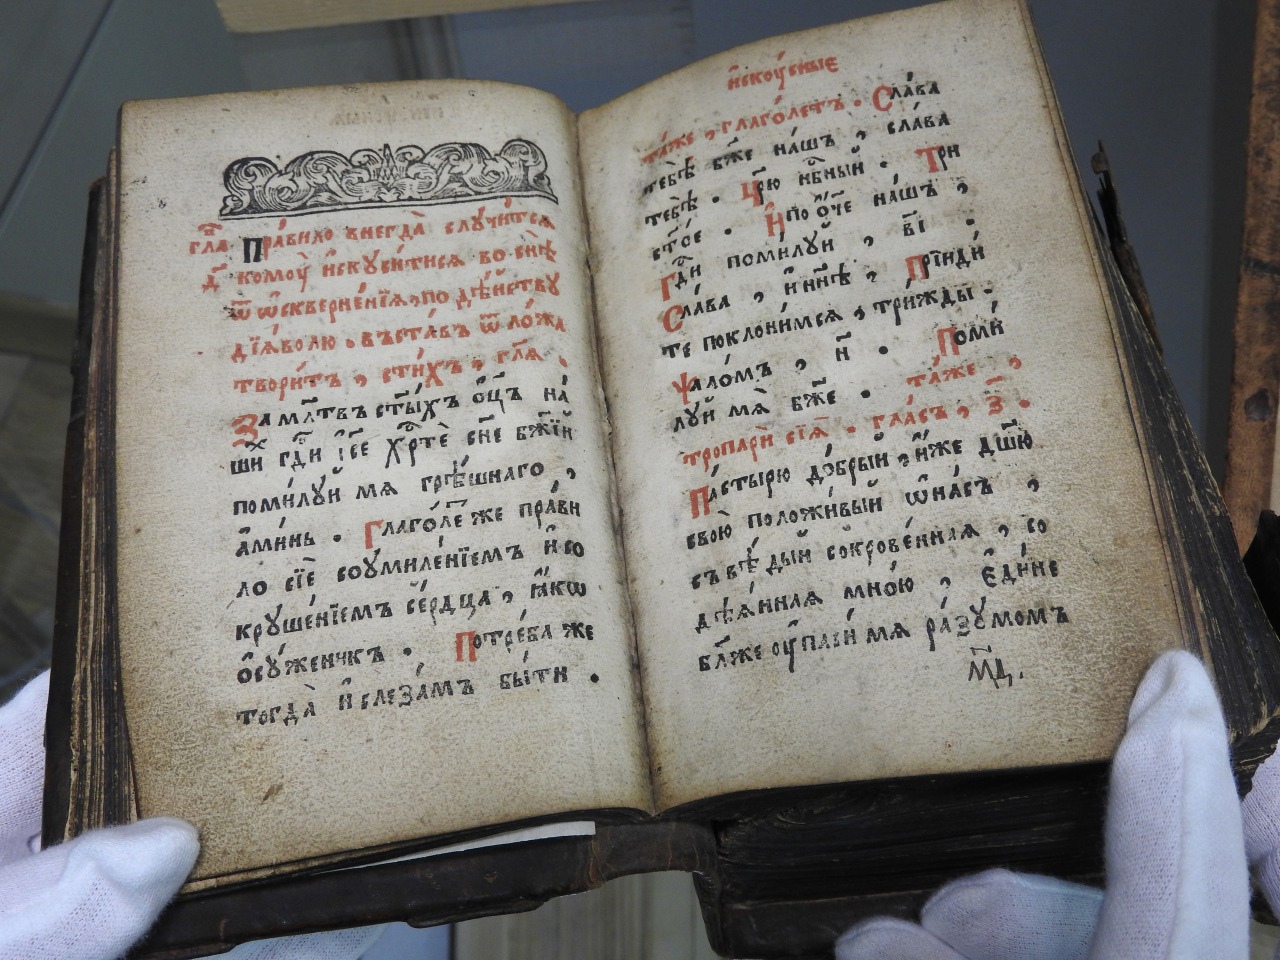 гл҃а Пра́вило внегда̀ случи́тся
д҃ комоу̀ и҆скуси́тися во снѣ̀
ѿ ѡ҆скверне́нїѧ, по дѣ́йству
дїѧ́волю . въста́въ ѿ ло́жа
твори́тъ , сти́хъ , гл҃ѧ .
За мл҃твъ ст҃ы́хъ ѻ҆ц҃ъ на́
ши гд҇и і҆се хр҇тѐ сн҃е бж҃їй
поми́луй мѧ грѣ́шнаго ,
а҆ми́нь . Глаго́ле же пра́ви
ло сїѐ соумиле́нїемъ и҆ со
круше́нїемъ се́рдца , ꙗ҆́кѡ
ѻ҆суженикъ . Потре́ба же
тогда̀ и҆ слеза́мъ бы́ти .
и҆скоу́сныѧ
та́же , глаго́летъ . Сла́ва
тебѣ̀ бж҃е на́шъ , сла́ва
тебѣ̀ . Цр҃ю нб҇ный . Три
ст҃о́е . И҆ по ѻ҆́ч҃е на́шъ ,
Гд҇и поми́луй , в҃і .
Сла́ва , и҆ ны́нѣ , Прїиди
те поклони́мсѧ , три́жды .
Ѱало́мъ , н҃ . Поми́
луй мѧ̀ бж҃е . та́же ,
тропарѝ сїѧ̀ . гла́съ , з҃ .
Па́стырю до́брый , и҆́же дш҃ю
свою̀ положи́вый ѡ҆ на́съ ,
съвѣ́дый сокрове́ннаѧ , со
дѣ́ѧннаѧ мно́ю , Е҆ди́не
бл҃же оу҆паси́ мѧ ра́зумомъ
м҃ц.